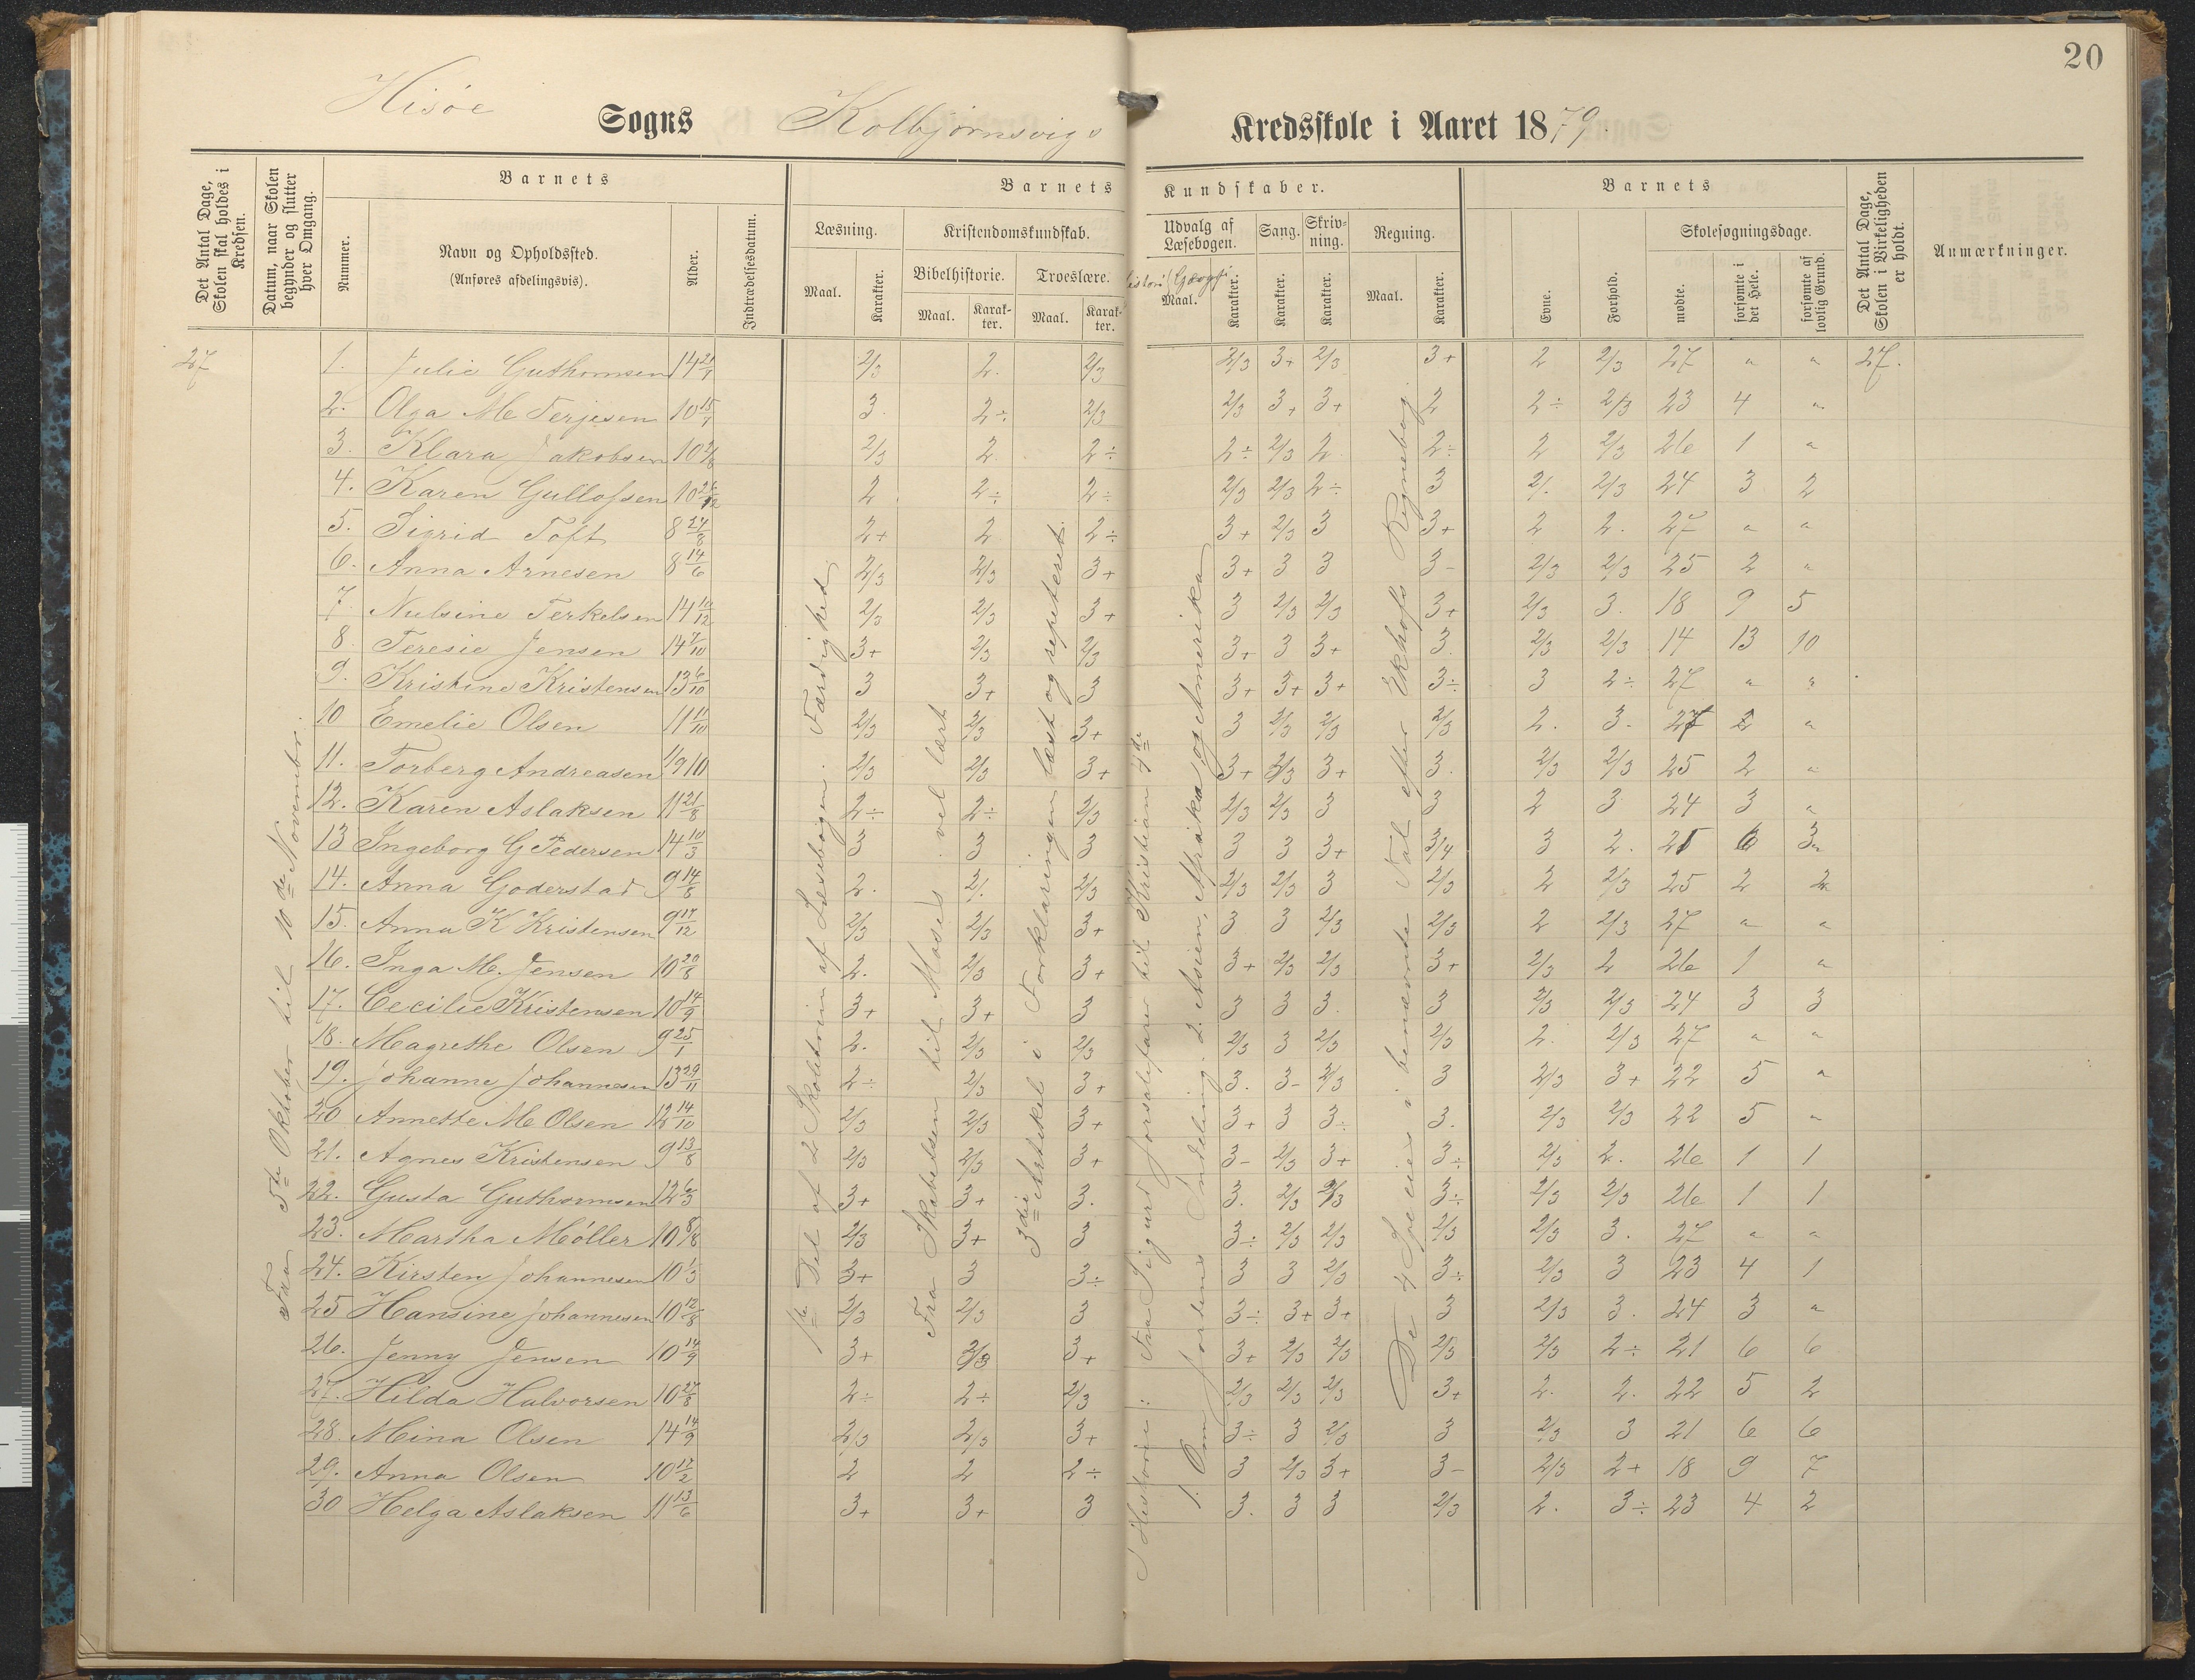 20
Hisøe Sogns Kolbjørnsvigs Kredsskole i Aaret 1879.
Det Antal Dage, Skolen skal holdes i Kredsen.
Datum, naar Skolen begynder og slutter hver Omgang.
Barnets
Nummer.
Navn og Opholdssted.
(Anføres afdelingsvis).
Alder.
Indtrædelsesdatum.
Barnets Kundskaber.
Læsning.
Maal.
Karakter.
Kristendomskundskab.
Bibelhistorie.
Maal.
Karakter.
Troeslære.
Maal.
Karakter.
Udvalg af Læsebogen.
Maal.
Karakter.
Sang.
Karakter.
Skrivning.
Karakter.
Regning.
Maal.
Karakter.
Barnets
Evne.
Forhold.
Skolesøgningsdage.
mødte.
forsømte i det Hele.
forsømte af lovlig Grund.
Det Antal Dage, Skolen i Virkeligheden er holdt.
Anmærkninger.
27
Fra 5te Oktober til 10de Novembr.
1ste Del af 2 Skoletrin af Læsebogen. Færdighed
Fra Skabelsen til Moses vel lært
3die Artikel i Forklaringen læst og repeteret.
I Historie: Fra Sigurd Jorsalefarer til Kristian 4de
1. Om Jordens Inddeling. 2. Asien, Afrika, og Amerika
De 4 Specier i benævnte Tal efter Ekhofs Regnebog.
1. Julie Guthormsen 14 21/7 2/3 2. 2/3 2/3 3+ 2/3 3+ 2 2/3 27 " " 27.
2. Olga M Terjesen 10 15/7 3. 2÷ 2/3 2/3 3+ 3+ 2 2÷ 2/3 23 4 "
3. Klara Jakobsen 10 2/3 2 2÷ 2÷ 2/3 2 2÷ 2 2/3 26 1 "
4. Karen Gullofsen 10 2 2÷ 2÷ 2/3 2/3 2÷ 3 2/. 2/3 24 3 2
5. Sigrid Toft 8 2+ 2 2÷ 3+ 2/3 3 3+ 2 2. 27 " "
6. Anna Arnesen 8 14/6 2/3 2/3 3+ 3+ 3 3 3- 2/3 2/3 25 2 "
7. Nulsine Terkelsen 14 10/12 2/3 2/3 3+ 3 2/3 2/3 3+ 2/3 3. 18 9 5
8. Teresie Jensen 14 7/10 3+ 2/3 2/3 3+ 3 3+ 3. 2/3 2/3 14 13 10
9. Kristine Kristensen 13 6/10 3 3+ 3 3+ 3+ 3+ 3÷ 3 2÷ 27 " "
10 Emelie Olsen 11 11/10 2/3 2/3 3+ 3 2/3 2/3 2/3 2. 3. 27 "
11. Torberg Andreasen 2/3 2/3 3+ 3+ 2/3 3+ 3. 2/3 2/3 25 2 "
12. Karen Aslaksen 11 21/8 2÷ 2÷ 2/3 2/3 2/3 3 3 2 3 24 3 "
13 Ingeborg G Pedersen 14 10/3 3 3 3 3 3 3+ 3/4 3 2. 6 3
14. Anna Goderstad 9 14/8 2. 2/. 2/3 2/3 2/3 3 2/3 2 2/3 25 2 2
15. Anna K Kristensen 9 17/12 2/3 2/3 3+ 3 3 2/3 2/3 2 2/3 27 " "
16. Inga M. Jensen 10 20/8 2. 2/3 3+ 3+ 2/3 2/3 3+ 2/3 2 26 1 "
17. Cecilie Kristensen 10 14/9 3+ 3+ 3 3 3 3. 3 2/3 2/3 24 3 3
18. Magrethe Olsen 9 25/1 2. 2/3 2/3 2/3 3 2/3 2/3 2. 2/3 27 " "
19. Johanne Johannesen 13 29/11 2÷ 2/3 3+ 3. 3- 2/3 3 2/3 3+ 22 5 "
20 Annette M Olsen 12 14/10 2/3 2/3 3+ 3+ 3 3÷ 3. 2/3 2/3 22 5 "
21. Agnes Kristensen 9 13/8 2/3 2/3 3+ 3- 2/3 3+ 3÷ 2/3 2. 26 1 1
22. Gusta Guthormsen 12 6/3 3+ 3+ 3. 3. 2/3 2/3 3÷ 2/3 2/3 26 1 1
23. Martha Møller 10 8/8 2/3 3+ 3 3÷ 2/3 2/3 2/3 2/3 3. 27 " "
24. Kirsten Johannesen 10 1/3 3+ 3 3÷ 3 3 2/3 3÷ 2/3 3 23 4 1
25 Hansine Johannesen 10 12/8 2/3 2/3 3 3÷ 3+ 3+ 3 2/3 3. 24 3 "
26. Jenny Jensen 10 14/9 3+ 2/3 3+ 3+ 2/3 2/3 2/3 2/3 2÷ 21 6 6
27. Hilda Halvorsen 10 27/8 2÷ 2÷ 2/3 2/3 2/3 2/3 3+ 2. 2. 22 5 2
28. Mina Olsen 14 14/9 2/3 2/3 3+ 3÷ 3 2/3 3 2/3 3 21 6 6
29. Anna Olsen 10 17/2 2 2 2÷ 3 2/3 3+ 3- 2/3 2+ 18 9 7
30 Helga Aslaksen 11 13/6 3+ 3+ 3 3. 3 3 2/3 2. 3÷ 23 4 2